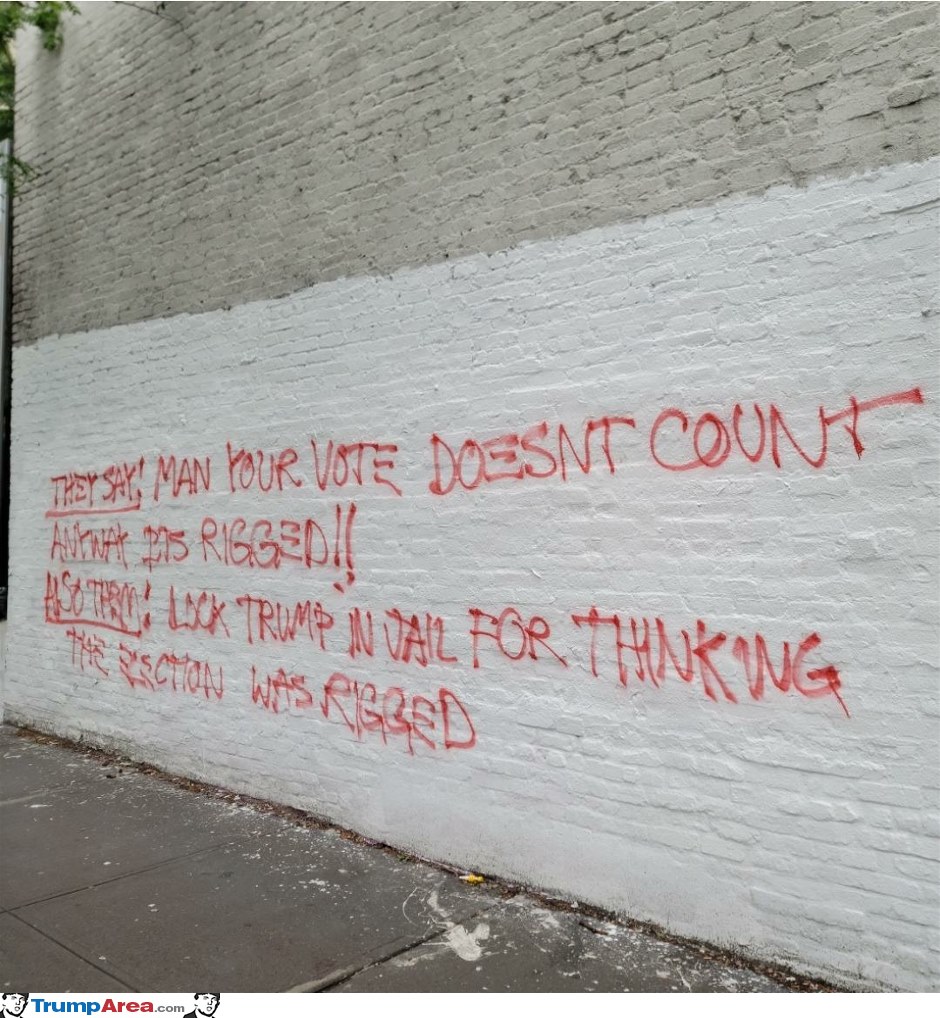 THEY SAY! MAN YOUR VOTE DOESNT COUNT
ANYWAY ITS RIGGED!!
ALSO THEM! LOCK TRUMP IN JAIL FOR THINKING
THE ELECTION WAS RIGGED
TrumpArea.com